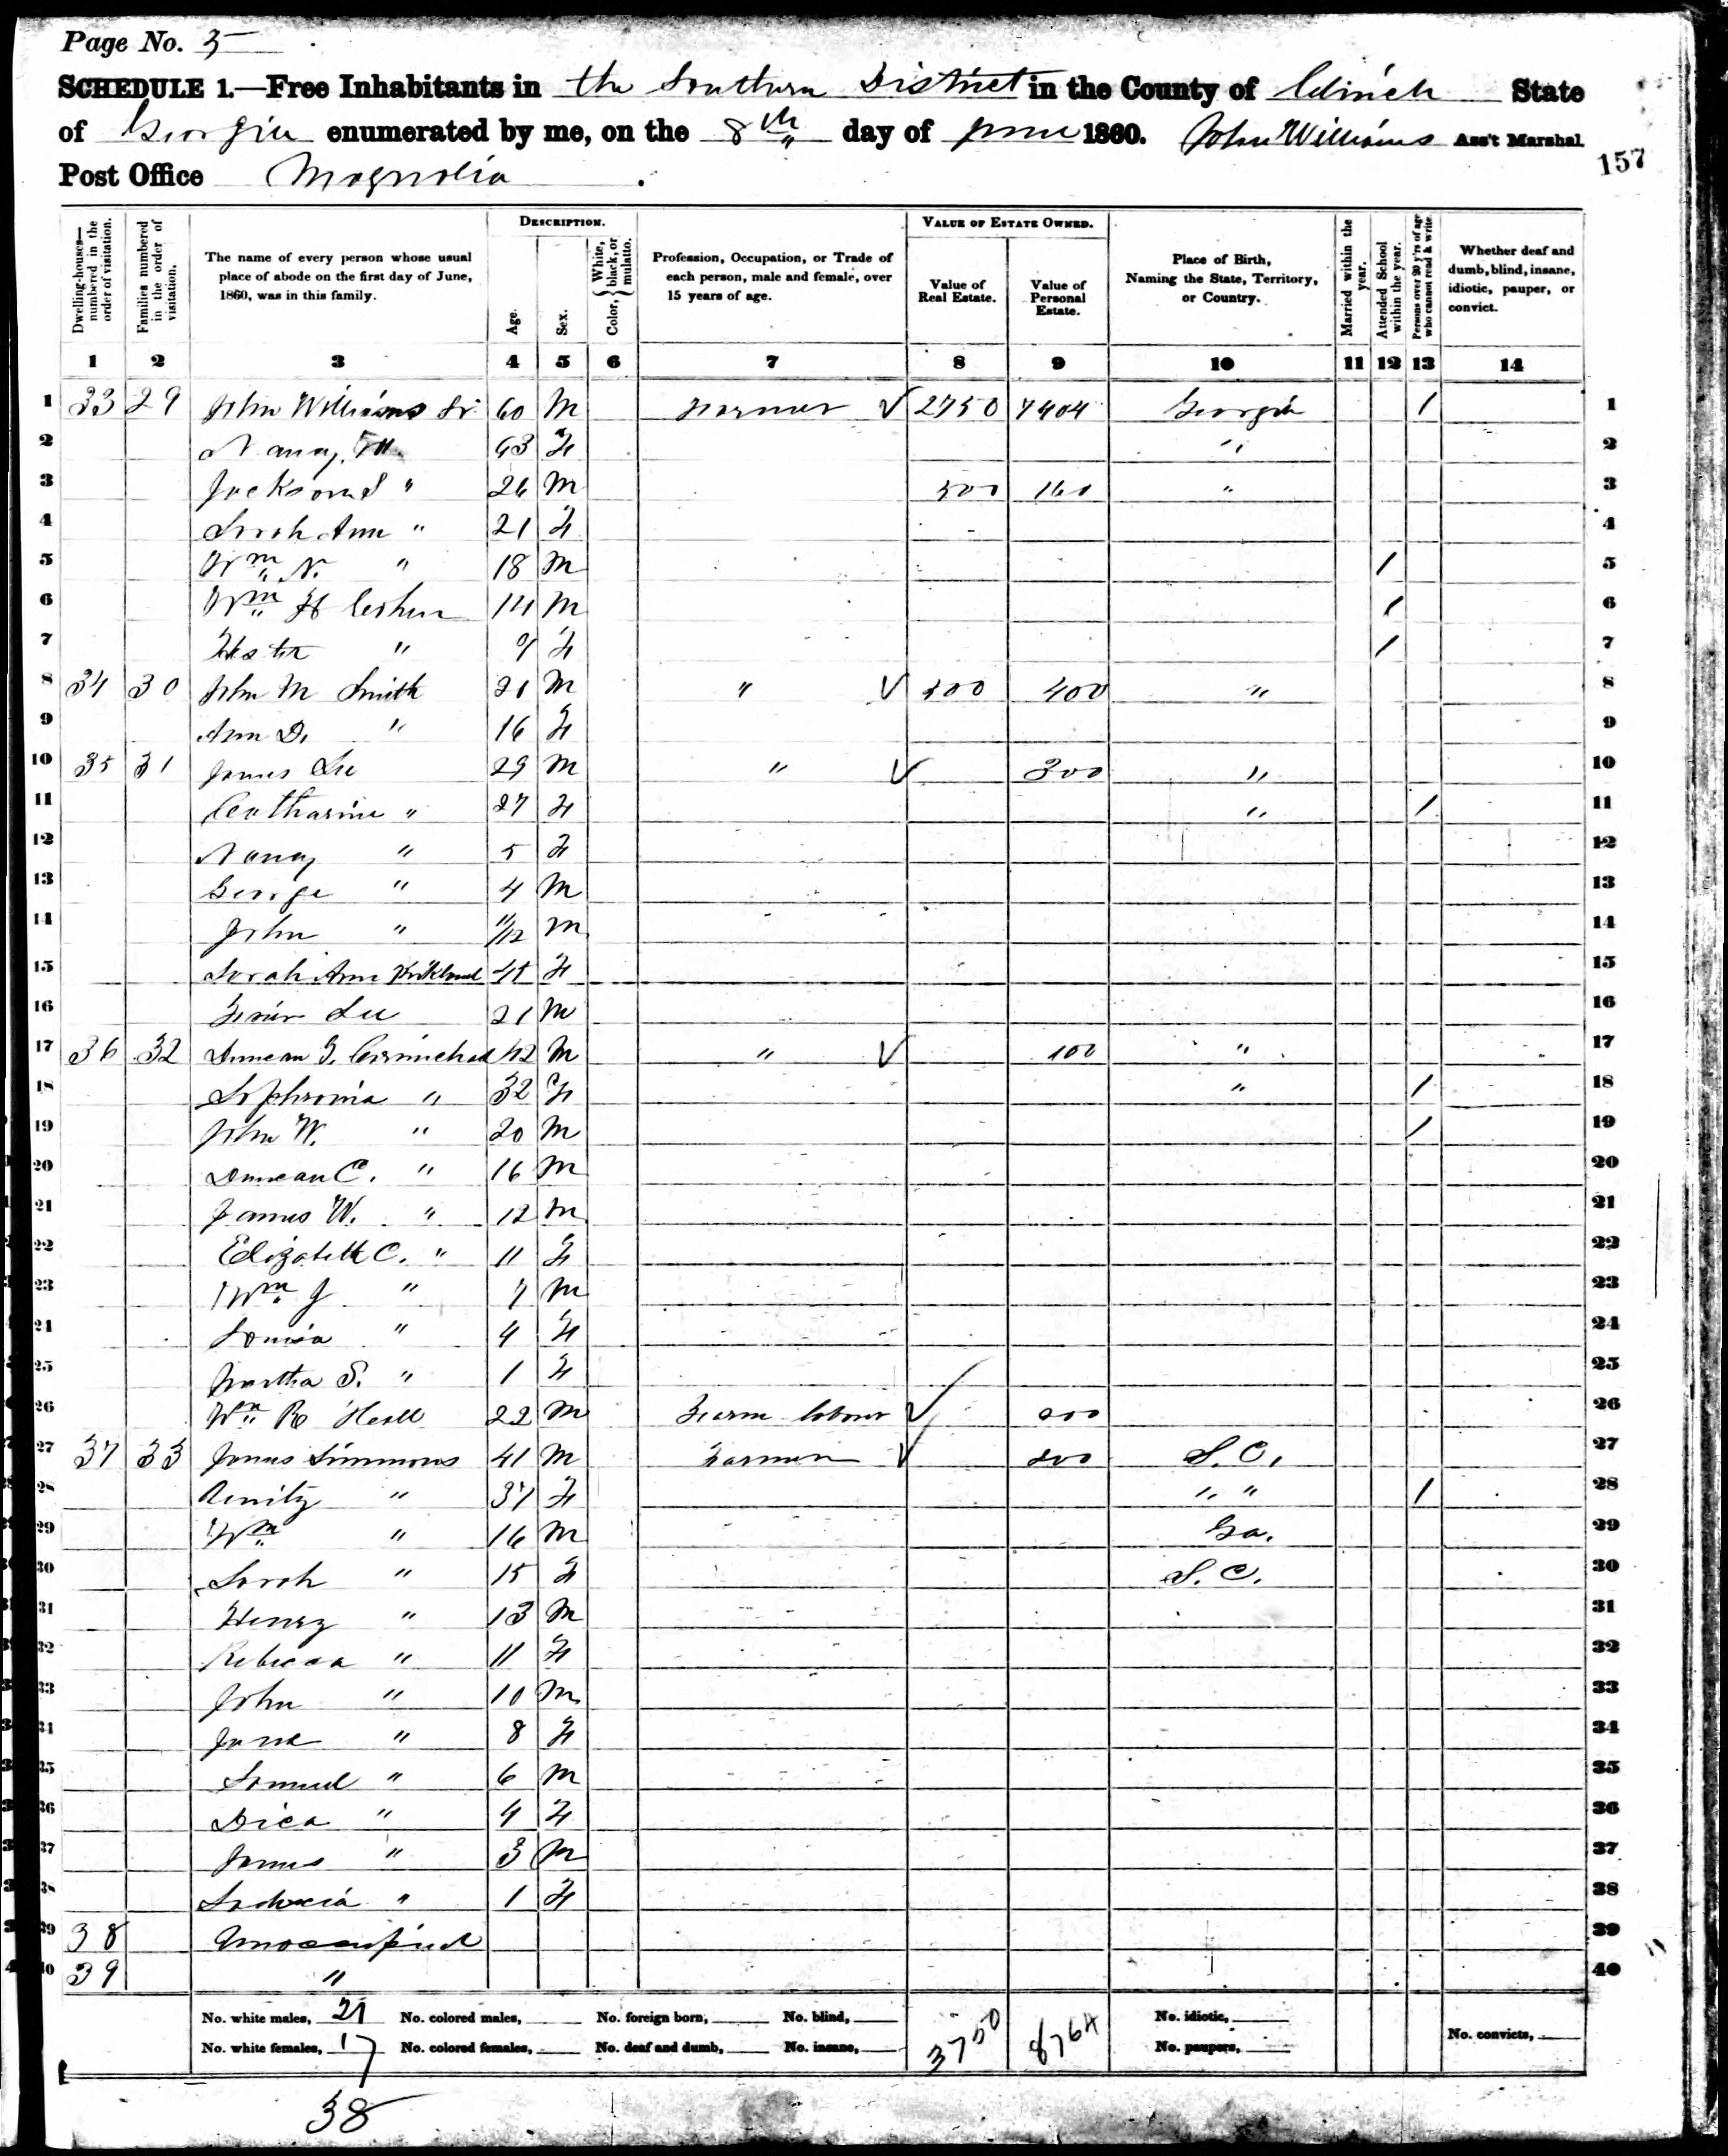 Page No. 5
SCHEDULE 1.—Free Inhabitants in the Southern District in the County of Clinch State
of Georgia enumerated by me, on the 8th day of June 1860. John Williams Ass't Marshal.
Post Office Magnolia
157
Dwelling-houses—numbered in the order of visitation.
Families numbered in the order of visitation.
The name of every person whose usual place of abode on the first day of June, 1860, was in this family.
DESCRIPTION.
Age.
Sex.
Color, {White, black, or mulatto.
Profession, Occupation, or Trade of each person, male and female, over 15 years of age.
VALUE OF ESTATE OWNED.
Value of Real Estate.
Value of Personal Estate.
Place of Birth, Naming the State, Territory, or Country.
Married within the year.
Attended School within the year.
Persons over 20 y'rs of age who cannot read & write
Whether deaf and dumb, blind, insane, idiotic, pauper, or convict.
1 2 3 4 5 6 7 8 9 10 11 12 13 14
1 33 29 John Williams Sr. 60 M Farmer ✓ 2750 7404 Georgia / 1
2 Nancy 63 F " 2
3 Jackson S " 26 M 500 160 " 3
4 Sarah Ann " 21 F 4
5 Wm N. " 18 M / 5
6 Wm H 14 M / 6
7 Hester " 9 F / 7
8 34 30 John M Smith 21 M " ✓ 500 400 " 8
9 Ann D. " 16 F 9
10 35 31 James Lee 29 M " ✓ 300 " 10
11 Catharine " 27 F " / 11
12 Nancy " 5 F 12
13 George " 4 M 13
14 John " 11/12 M 14
15 Sarah Ann Kirkland 45 F 15
16 Lee 21 M 16
17 36 32 Duncan G. Carmichael 42 M " ✓ 100 " 17
18 Sophronia " 32 F " / 18
19 John W. " 20 M / 19
20 Duncan C. " 16 M 20
21 James W. " 12 M 21
22 Elizabeth C. " 11 F 22
23 Wm J " 7 M 23
24 Louisa " 4 F 24
25 Martha S. " 1 F 25
26 Wm R Hall 22 M Farm labour ✓ 200 26
27 37 33 James Simmons 41 M Farmer ✓ 200 S. C. 27
28 " 37 F " " / 28
29 Wm " 16 M Ga. 29
30 Sarah " 15 F S. C. 30
31 Henry " 13 M 31
32 Rebecca " 11 F 32
33 John " 10 M 33
34 Jane " 8 F 34
35 Samuel " 6 M 35
36 Dica " 4 F 36
37 James " 3 M 37
38 " 1 F 38
39 38 Unoccupied 39
40 39 " 40
No. white males, 21 No. colored males, No. foreign born, No. blind, 3750 8764 No. idiotic,
No. white females, 17 No. colored females, No. deaf and dumb, No. insane, No. paupers, No. convicts,
38